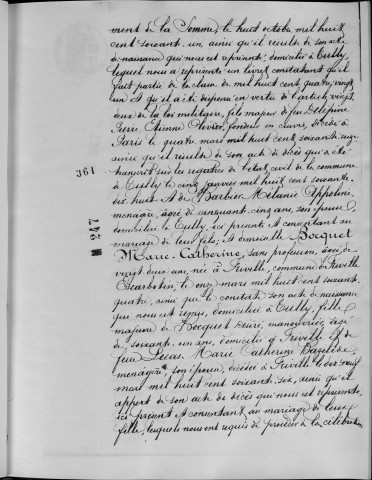 ment de la Somme, le huit octobre mil huit
cent soixante un, ainsi qu'il résulte de son acte
de naissance qui nous est représenté, domicilié à Tully,
lequel nous a représenté un livret constatant qu'il
fait partie de la classe de mil huit cent quatre vingt
un et qu'il a été dispensé en vertu de l'article vingt
deux de la loi militaire, fils majeur de feu Delépine
Pierre Etienne Olivier, fondeur en cuivre, décédé à
Paris le quatre mars mil huit cent soixante onze
ainsi qu'il résulte de son acte de décès qui a été
transcrit sur les registres de l'état civil de la commune
361
de Tully le cinq janvier mil huit cent soixante
dix huit et de Barbier Mélanie Appoline,
ménagère, âgée de cinquante cinq ans, son épouse,
domiciliée à Tully, ici présente et consentant au
M 247
mariage de leur fils; et demoiselle Bocquet
Marie Catherine, sans profession, âgée de
vingt deux ans, née à Friville, commune de Friville
Escarbotin, le onze mars mil huit cent soixante
quatre, ainsi que le constate son acte de naissance
qui nous est remis, domiciliée à Tully, fille
majeure de Bocquet Henri, manouvrier, âgé
de soixante un ans, domicilié à Friville et de
feue Lucas Marie Catherine Bazelide,
ménagère, son épouse, décédée à Friville le dix neuf
mars mil huit cent soixante six, ainsi qu'il
appert de son acte de décès qui nous est représenté,
ici présent et consentant au mariage de leur
fille, lesquels nous ont requis de procéder à la célébration